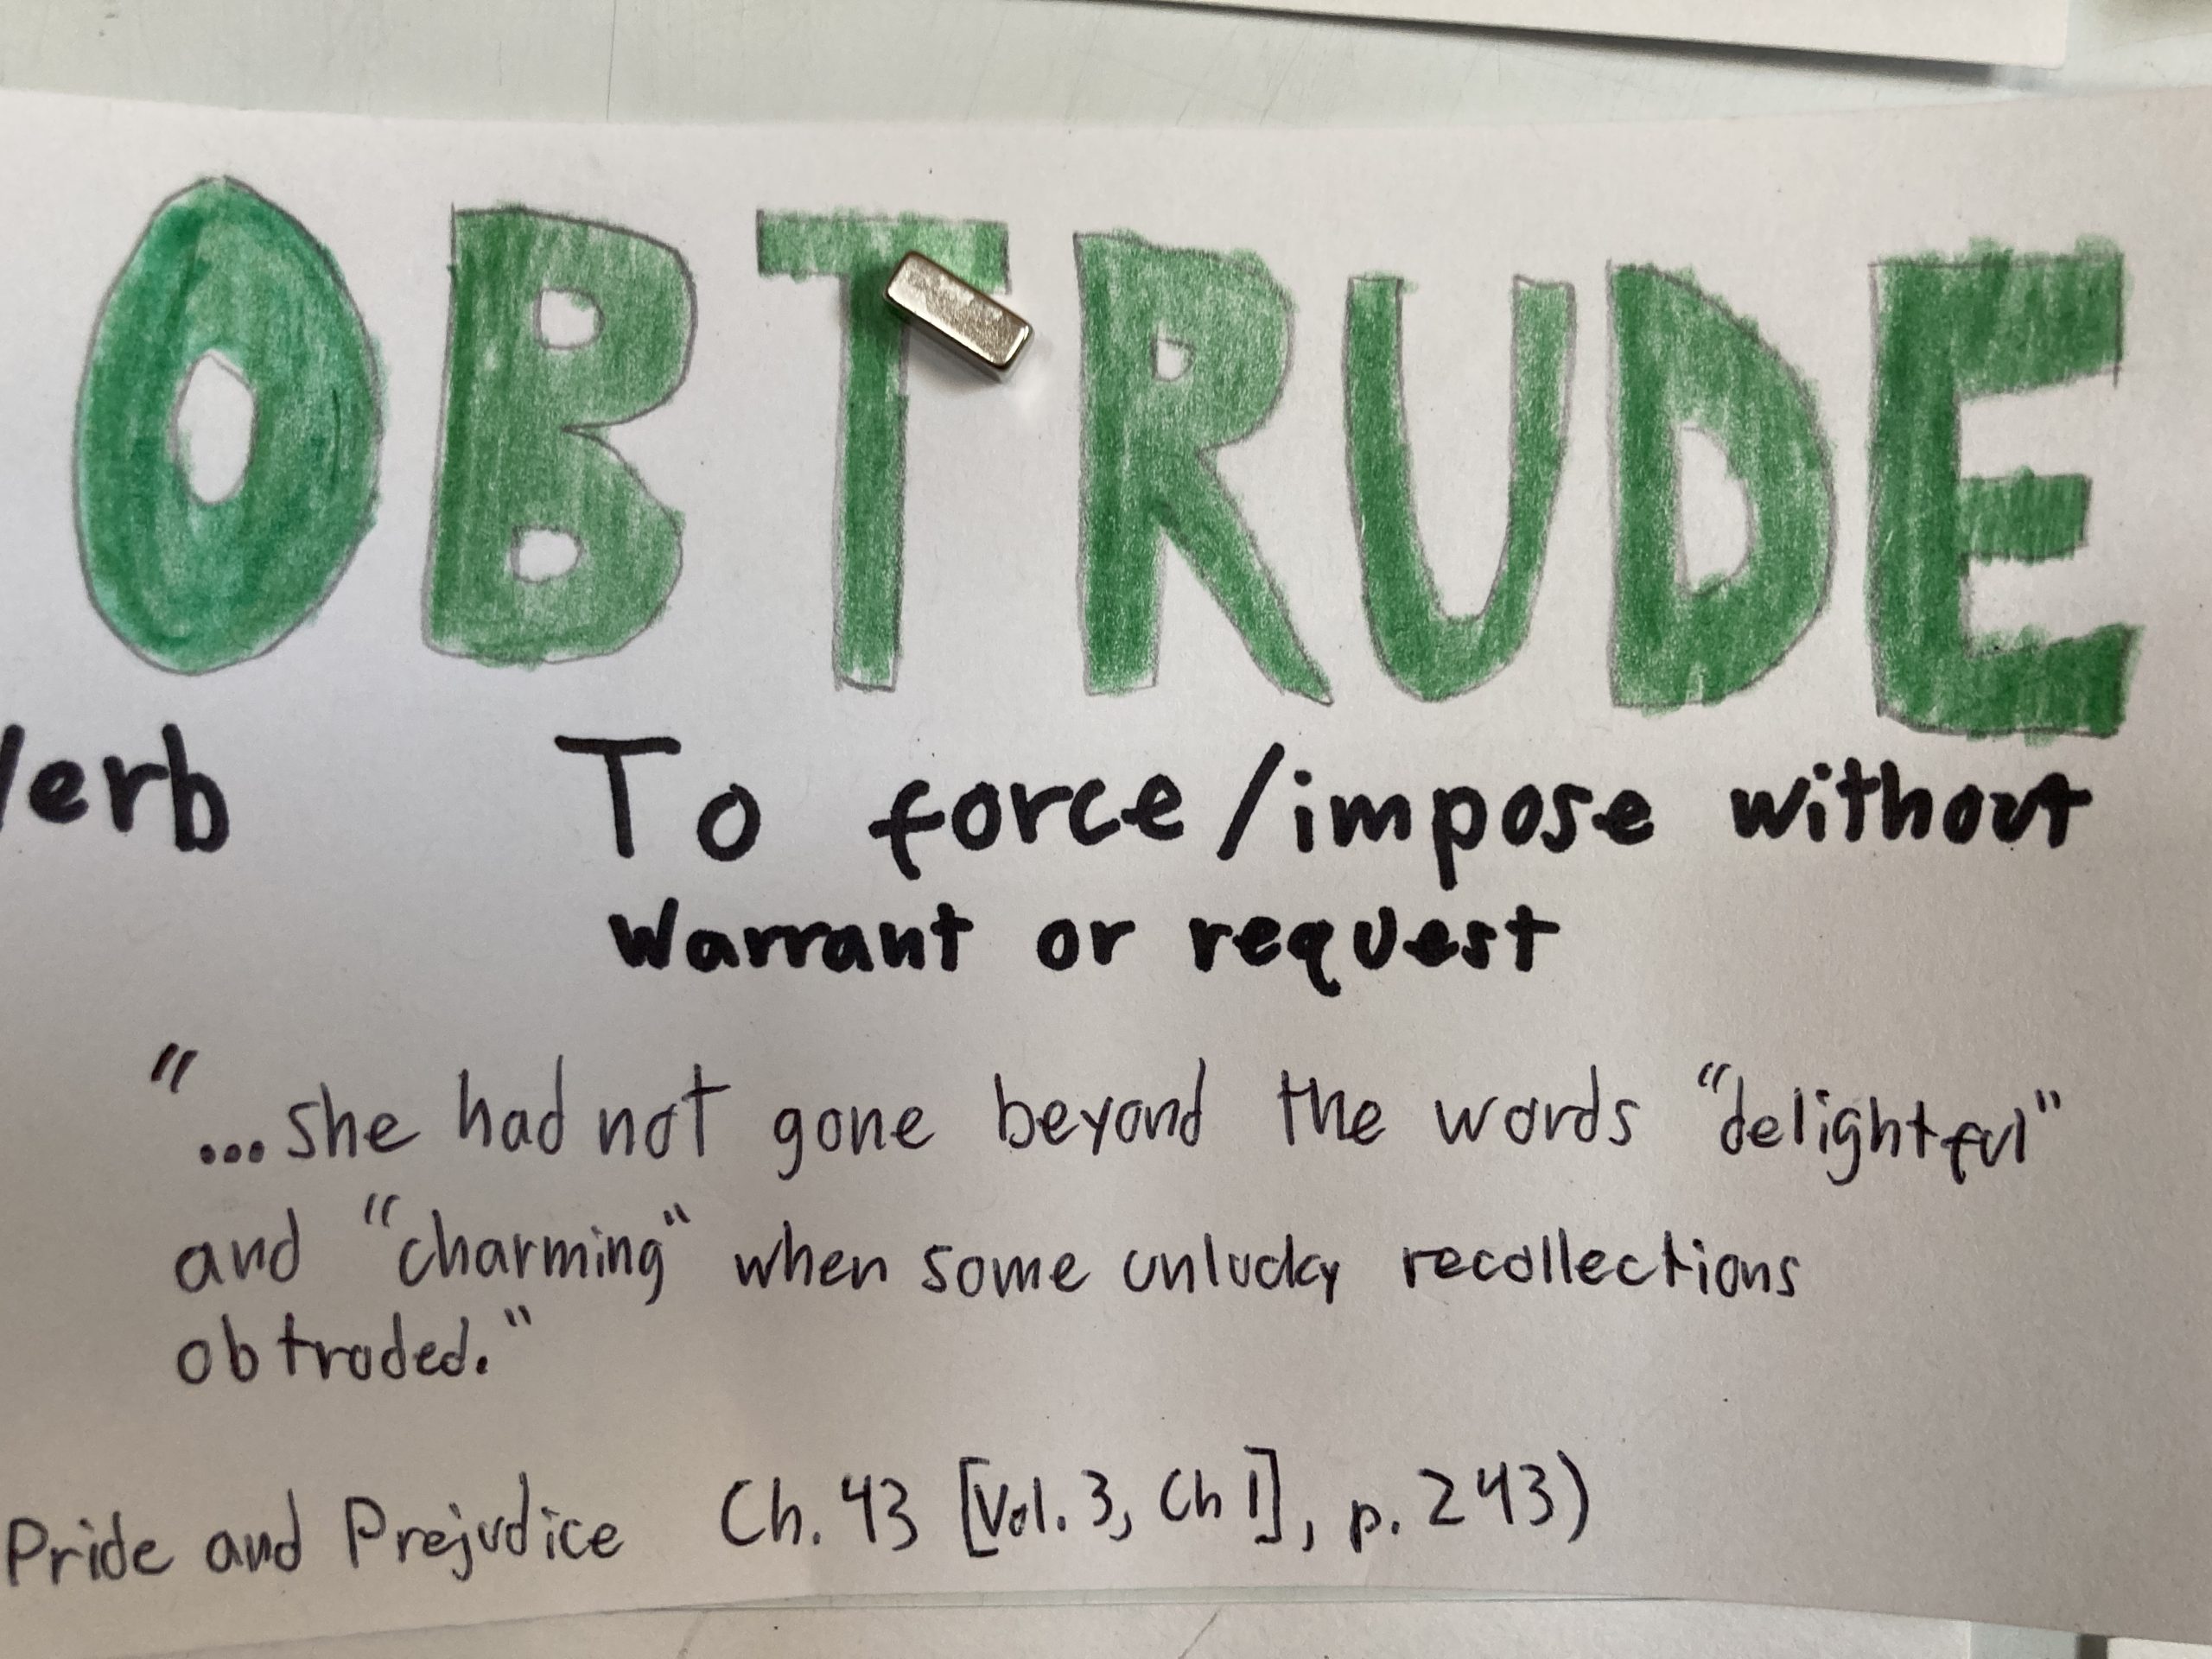 OBTRUDE
Verb To force/impose without
warrant or request
"...she had not gone beyond the words "delightful"
and "charming" when some unlucky recollections
obtruded."
Pride and Prejudice Ch. 43 [Vol. 3, Ch 1], p. 243)